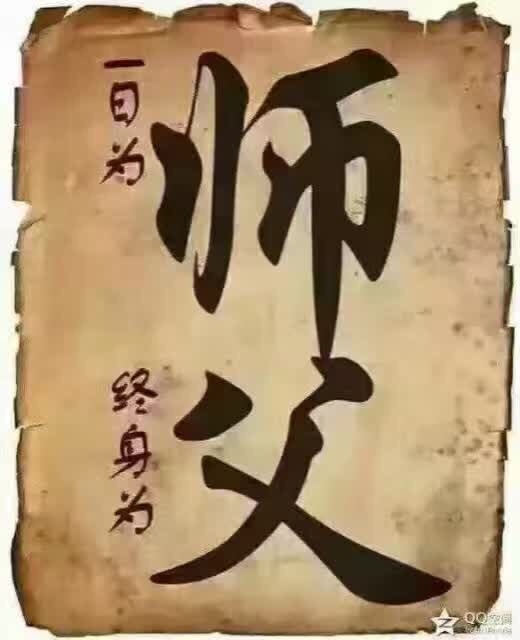 一日为
师
终身为
父
QQ空间